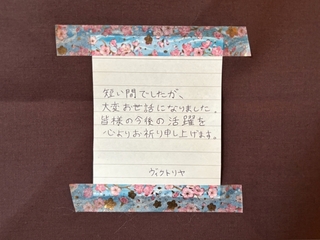 短い間でしたが、
大変お世話になりました。
皆様の今後の活躍を
心よりお祈り申し上げます。
ヴィクトリヤ